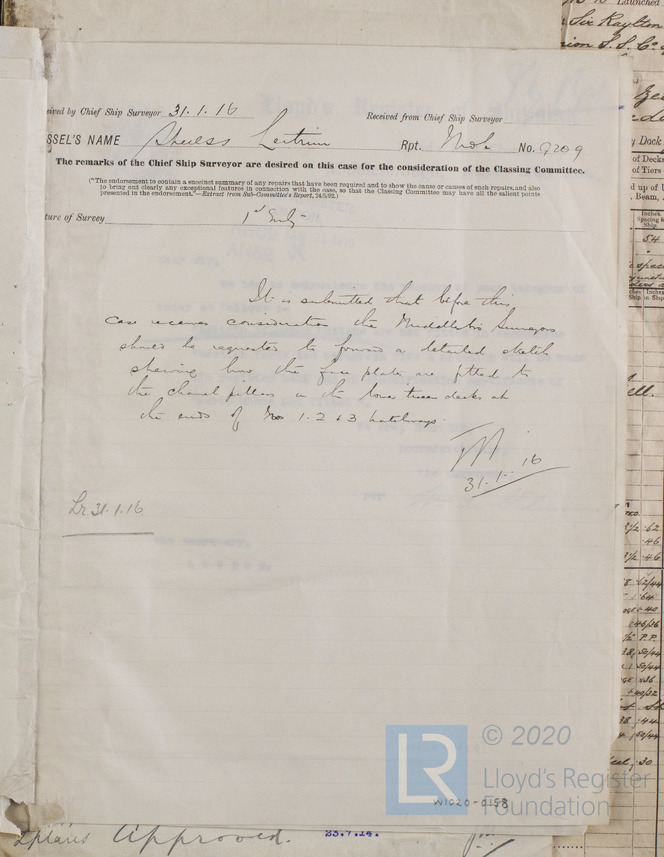 Launched
Sir Raylton
ion S. S. Co
eived by Chief Ship Surveyor 31.1.16
Received from Chief Ship Surveyor
SSEL'S NAME Leitrim
Rpt. Mdb. No. 9209
The remarks of the Chief Ship Surveyor are desired on this case for the consideration of the Classing Committee.
("The endorsement to contain a succinct summary of any repairs that have been required and to show the cause or causes of such repairs, and also
to bring out clearly any exceptional features in connection with the case, so that the Classing Committee may have all the salient points
presented in the endorsement."—Extract from Sub-Committee's Report, 24/5/92.)
ture of Survey 1st Entry
It is submitted that before this
case receives consideration the Middlesbro Surveyors
should be requested to forward a detailed sketch
shewing how the face plates are fitted to
the channel pillars in the lower tween decks at
the ends of Nos 1. 2 & 3 hatchways.
31.1.16
Lr. 31.1.16
y Dack
of Decks
of Tiers
Beam,
54
LR
© 2020
Lloyd's Register
Foundation
W1020-0158
2 plans Approved.
23.7.14.